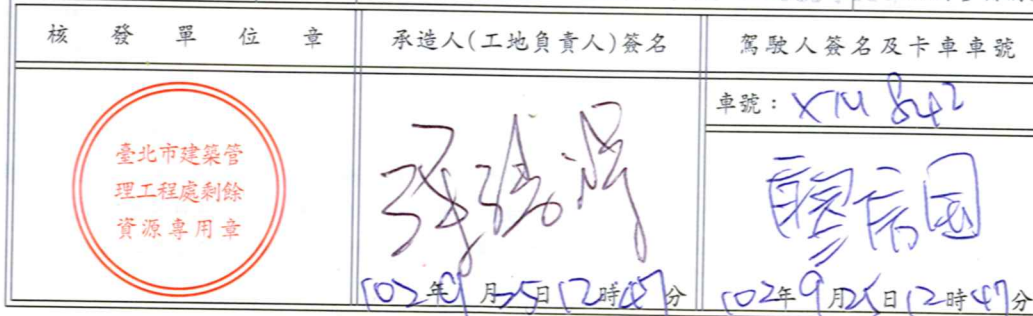 核發單位章
承造人(工地負責人)簽名
駕駛人簽名及卡車車號
臺北市建築管
理工程處剩餘
資源專用章
102年9月25日12時47分
車號：XM 842
102年9月25日12時47分